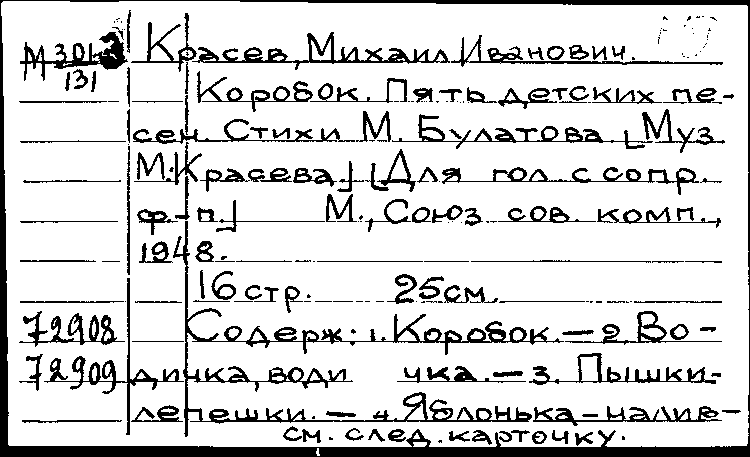 М 301-3 Красев, Михаил Иванович.
131
Коробок. Пять детских пе-
сен. Стихи М. Булатова. [Муз
М. Красева.] [Для гол. с сопр.
ф.-п.] М., Союз сов. комп.,
1948.
16 стр. 25 см.
72908 Содерж: 1. Коробок. — 2. Во-
72909 дичка, води чка. — 3. Пышки-
лепешки. — 4. Яблонька-налив-
см. след. карточку.